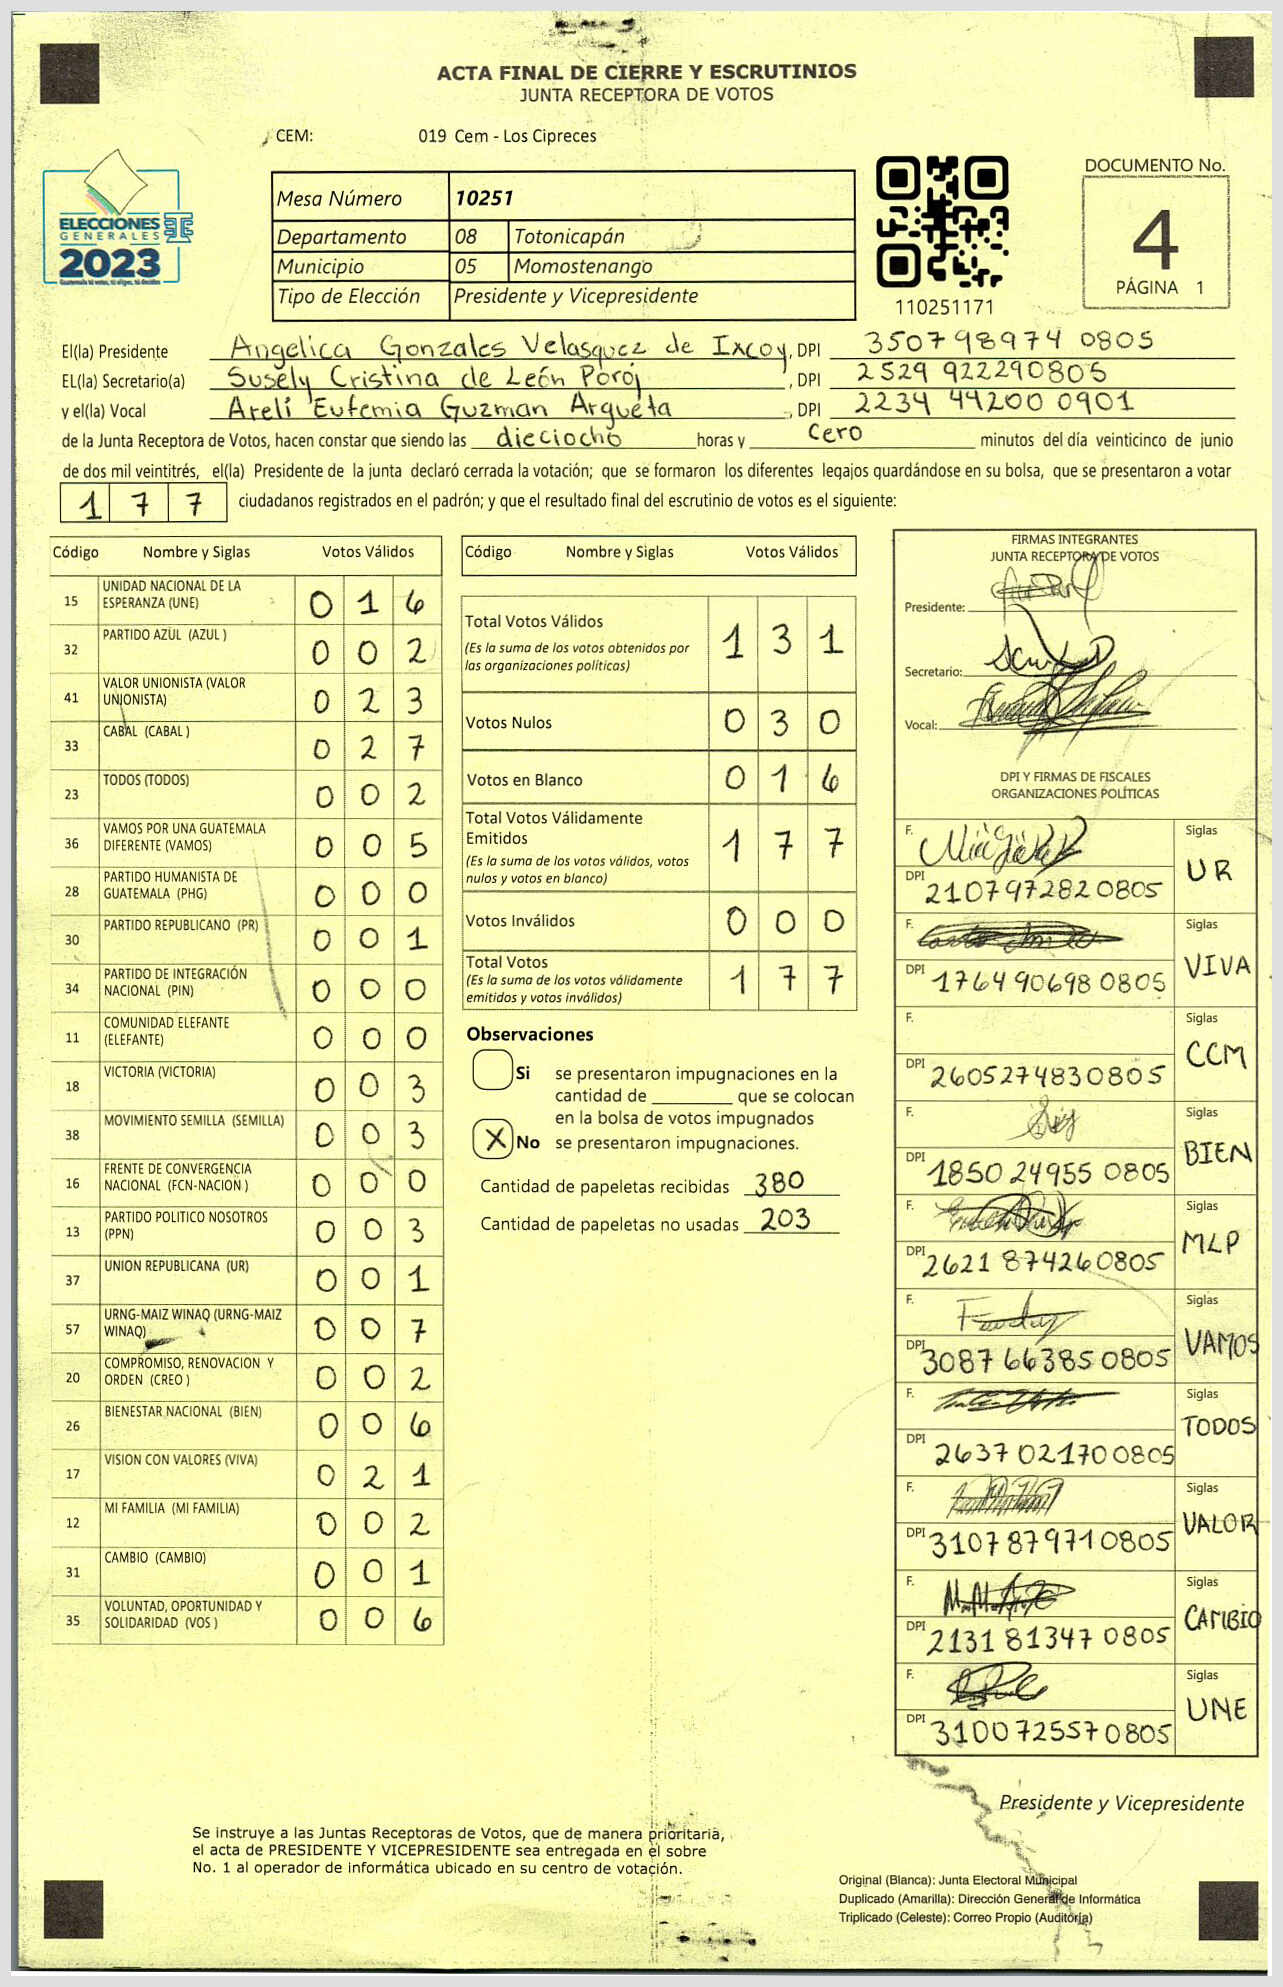 ACTA FINAL DE CIERRE Y ESCRUTINIOS
JUNTA RECEPTORA DE VOTOS
CEM: 019 Cem - Los Cipreces
ELECCIONES
GENERALES
2023
Mesa Número 10251
Departamento 08 Totonicapán
Municipio 05 Momostenango
Tipo de Elección Presidente y Vicepresidente
110251171
DOCUMENTO No.
4
PÁGINA 1
El(la) Presidente Angelica Gonzales Velasquez de Ixcoy, DPI 350798974 0805
EL(la) Secretario(a) Susely Cristina de León Poroj, DPI 2529 922290805
y el(la) Vocal Areli Eufemia Guzman Argueta, DPI 2234 44200 0901
de la Junta Receptora de Votos, hacen constar que siendo las dieciocho horas y cero minutos del día veinticinco de junio
de dos mil veintitrés, el(la) Presidente de la junta declaró cerrada la votación; que se formaron los diferentes legajos quardándose en su bolsa, que se presentaron a votar
177 ciudadanos registrados en el padrón; y que el resultado final del escrutinio de votos es el siguiente:
Código Nombre y Siglas Votos Válidos
15 UNIDAD NACIONAL DE LA
ESPERANZA (UNE) 0 1 6
32 PARTIDO AZUL (AZUL ) 0 0 2
41 VALOR UNIONISTA (VALOR
UNIONISTA) 0 2 3
33 CABAL (CABAL ) 0 2 7
23 TODOS (TODOS) 0 0 2
36 VAMOS POR UNA GUATEMALA
DIFERENTE (VAMOS) 0 0 5
28 PARTIDO HUMANISTA DE
GUATEMALA (PHG) 0 0 0
30 PARTIDO REPUBLICANO (PR) 0 0 1
34 PARTIDO DE INTEGRACIÓN
NACIONAL (PIN) 0 0 0
11 COMUNIDAD ELEFANTE
(ELEFANTE) 0 0 0
18 VICTORIA (VICTORIA) 0 0 3
38 MOVIMIENTO SEMILLA (SEMILLA) 0 0 3
16 FRENTE DE CONVERGENCIA
NACIONAL (FCN-NACION ) 0 0 0
13 PARTIDO POLITICO NOSOTROS
(PPN) 0 0 3
37 UNION REPUBLICANA (UR) 0 0 1
57 URNG-MAIZ WINAQ (URNG-MAIZ
WINAQ) 0 0 7
20 COMPROMISO, RENOVACION Y
ORDEN (CREO ) 0 0 2
26 BIENESTAR NACIONAL (BIEN) 0 0 6
17 VISION CON VALORES (VIVA) 0 2 1
12 MI FAMILIA (MI FAMILIA) 0 0 2
31 CAMBIO (CAMBIO) 0 0 1
35 VOLUNTAD, OPORTUNIDAD Y
SOLIDARIDAD (VOS ) 0 0 6
Código Nombre y Siglas Votos Válidos
Total Votos Válidos 1 3 1
(Es la suma de los votos obtenidos por
las organizaciones políticas)
Votos Nulos 0 3 0
Votos en Blanco 0 1 6
Total Votos Válidamente
Emitidos 1 7 7
(Es la suma de los votos válidos, votos
nulos y votos en blanco)
Votos Inválidos 0 0 0
Total Votos 1 7 7
(Es la suma de los votos válidamente
emitidos y votos inválidos)
Observaciones
Si se presentaron impugnaciones en la
cantidad de ________ que se colocan
en la bolsa de votos impugnados
X No se presentaron impugnaciones.
Cantidad de papeletas recibidas 380
Cantidad de papeletas no usadas 203
FIRMAS INTEGRANTES
JUNTA RECEPTORA DE VOTOS
Presidente:
Secretario:
Vocal:
DPI Y FIRMAS DE FISCALES
ORGANIZACIONES POLÍTICAS
F. Siglas
DPI 2107972820805 UR
F. Siglas
DPI 176490698 0805 VIVA
F. Siglas
DPI 2605274830805 CCM
F. Siglas
DPI 1850 24955 0805 BIEN
F. Siglas
DPI 2621 874260805 MLP
F. Siglas
DPI 3087 66385 0805 VAMOS
F. Siglas
DPI 2637 02170 0805 TODOS
F. Siglas
DPI 3107 87971 0805 VALOR
F. Siglas
DPI 2131 81347 0805 CAMBIO
F. Siglas
DPI 3100725570805 UNE
Presidente y Vicepresidente
Se instruye a las Juntas Receptoras de Votos, que de manera prioritaria,
el acta de PRESIDENTE Y VICEPRESIDENTE sea entregada en el sobre
No. 1 al operador de informática ubicado en su centro de votación.
Original (Blanca): Junta Electoral Municipal
Duplicado (Amarilla): Dirección General de Informática
Triplicado (Celeste): Correo Propio (Auditoría)